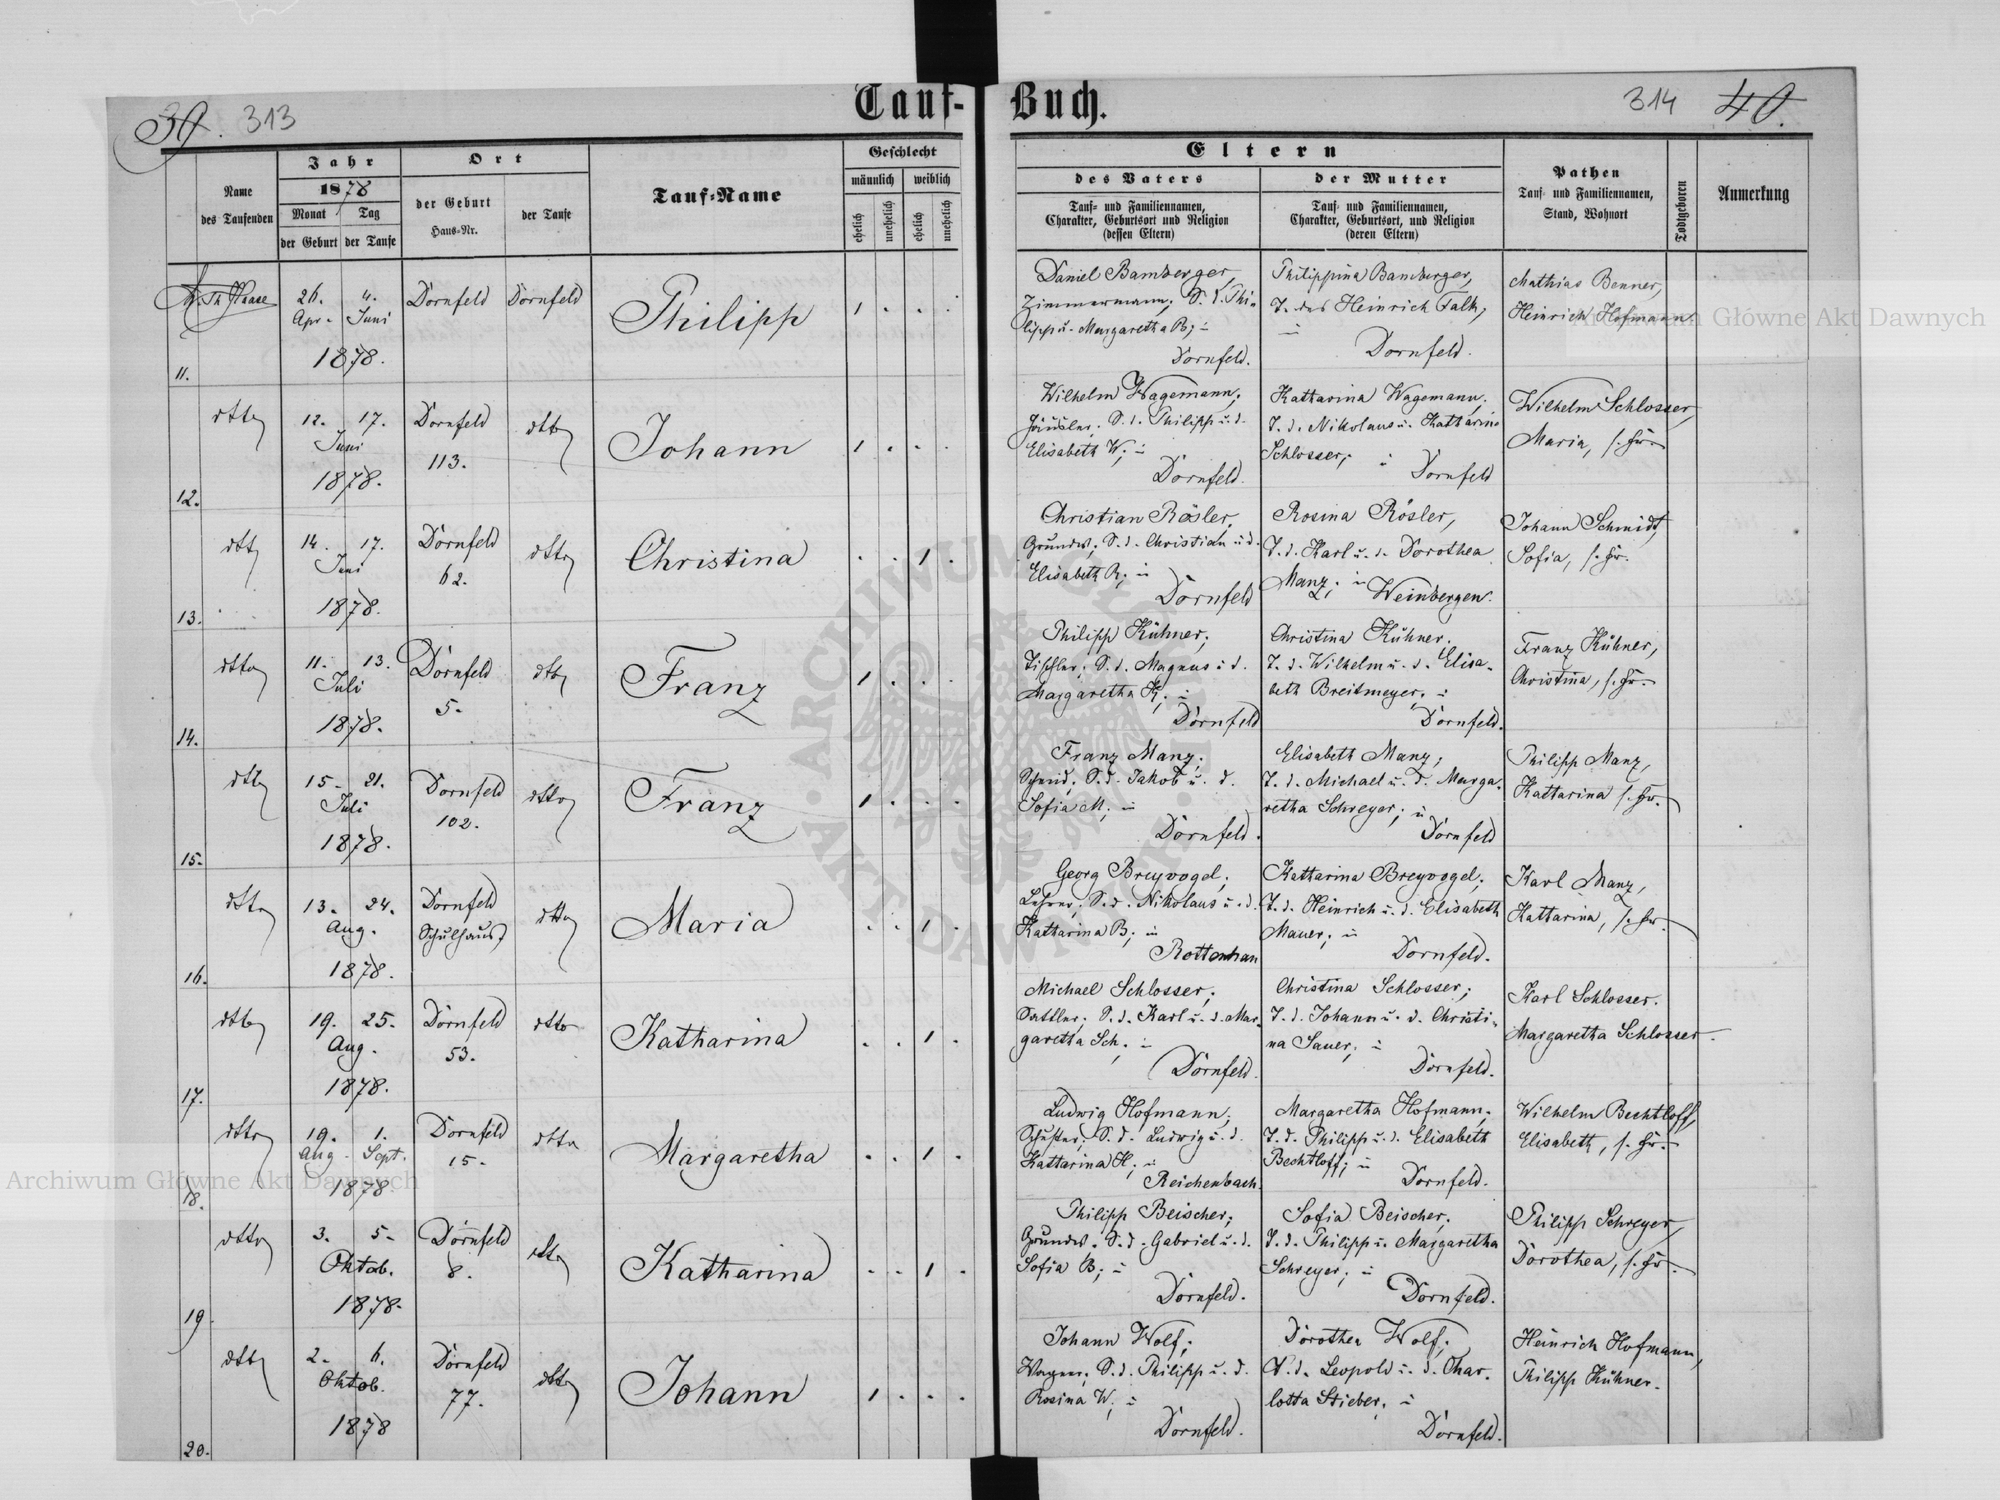 39. 313
Tauf-Buch.
314 40.
Name
des Taufenden
Jahr
1878
Monat Tag
der Geburt der Taufe
Ort
der Geburt
Haus-Nr.
der Taufe
Tauf-Name
Geschlecht
männlich weiblich
ehelich unehelich ehelich unehelich
Eltern
des Vaters
Tauf- und Familiennamen,
Charakter, Geburtsort und Religion
(dessen Eltern)
der Mutter
Tauf- und Familiennamen,
Charakter, Geburtsort, und Religion
(deren Eltern)
Pathen
Tauf- und Familiennamen,
Stand, Wohnort
Todtgeboren
Anmerkung
11.
26. 4.
Apr. Juni
1878.
Dornfeld
Dornfeld
Philipp
1 . . .
Daniel Bamberger,
Zimmermann, S. d. Phi-
lipp u. Margaretha B;
Dornfeld.
Philippina Bamberger,
T. des Heinrich Falk;
Dornfeld.
Mathias Benner,
Heinrich Hofmann
12.
dtto
12. 17.
Juni
1878.
Dornfeld
113.
dtto
Johann
1 . . .
Wilhelm Wagemann;
Häusler. S. d. Philipp u. d.
Elisabeth W;
Dornfeld.
Katharina Wagemann,
T. d. Nikolaus u. Katharina
Schlosser;
Dornfeld
Wilhelm Schlosser,
Maria, s. Fr.
13.
dtto
14. 17.
Juni
1878.
Dornfeld
62.
dtto
Christina
. . 1 .
Christian Rösler.
Grundw. S. d. Christian u. d.
Elisabeth R;
Dornfeld
Rosina Rösler,
T. d. Karl u. d. Dorothea
Manz;
Weinbergen.
Johann Schmidt,
Sofia, s. Fr.
14.
dtto
11. 13.
Juli
1878.
Dornfeld
5.
dtto
Franz
1 . . .
Philipp Kühner;
Tischler; S. d. Magnus u. d.
Margaretha K;
Dornfeld
Christina Kühner.
T. d. Wilhelm u. d. Elisa-
beth Breitmeyer.
Dornfeld.
Franz Kühner,
Christina, s. Fr.
15.
dtto
15. 21.
Juli
1878.
Dornfeld
102.
dtto
Franz
1 . . .
Franz Manz;
Schmid; S. d. Jakob u. d.
Sofia M;
Dornfeld.
Elisabeth Manz;
T. d. Michael u. d. Marga-
retha Schreyer;
Dornfeld
Philipp Manz,
Katharina s. Fr.
16.
dtto
13. 24.
Aug.
1878.
Dornfeld
Schulhaus
dtto
Maria
. . 1 .
Georg Breyvogel;
Lehrer; S. d. Nikolaus u. d.
Katharina B;
Rottenhan
Katharina Breyvogel;
T. d. Heinrich u. d. Elisabeth
Mauer;
Dornfeld.
Karl Manz,
Katharina, s. Fr.
17.
dtto
19. 25.
Aug.
1878.
Dornfeld
53.
dtto
Katharina
. . 1 .
Michael Schlosser;
Sattler; S. d. Karl u. d. Mar-
garetha Sch.
Dornfeld.
Christina Schlosser;
T. d. Johann u. d. Christi-
na Sauer;
Dornfeld.
Karl Schlosser.
Margaretha Schlosser.
18.
dtto
19. 1.
Aug. Sept.
1878.
Dornfeld
15.
dtto
Margaretha
. . 1 .
Ludwig Hofmann;
Schuster; S. d. Ludwig u. d.
Katharina H;
Reichenbach.
Margaretha Hofmann;
T. d. Philipp u. d. Elisabeth
Bechtloff;
Dornfeld.
Wilhelm Bechtloff,
Elisabeth, s. Fr.
19.
dtto
3. 5.
Oktob.
1878.
Dornfeld
8.
dtto
Katharina
. . 1 .
Philipp Beischer;
Grundw. S. d. Gabriel u. d.
Sofia B;
Dornfeld.
Sofia Beischer;
T. d. Philipp u. Margaretha
Schreyer;
Dornfeld.
Philipp Schreyer,
Dorothea, s. Fr.
20.
dtto
2. 6.
Oktob.
1878
Dornfeld
77.
dtto
Johann
1 . . .
Johann Wolf;
Wagner; S. d. Philipp u. d.
Rosina W;
Dornfeld.
Dorothea Wolf;
T. d. Leopold u. d. Char-
lotta Stieber,
Dornfeld.
Heinrich Hofmann,
Philipp Kühner.
Archiwum Główne Akt Dawnych
Archiwum Główne Akt Dawnych
ARCHIWUM GŁÓWNE AKT DAWNYCH